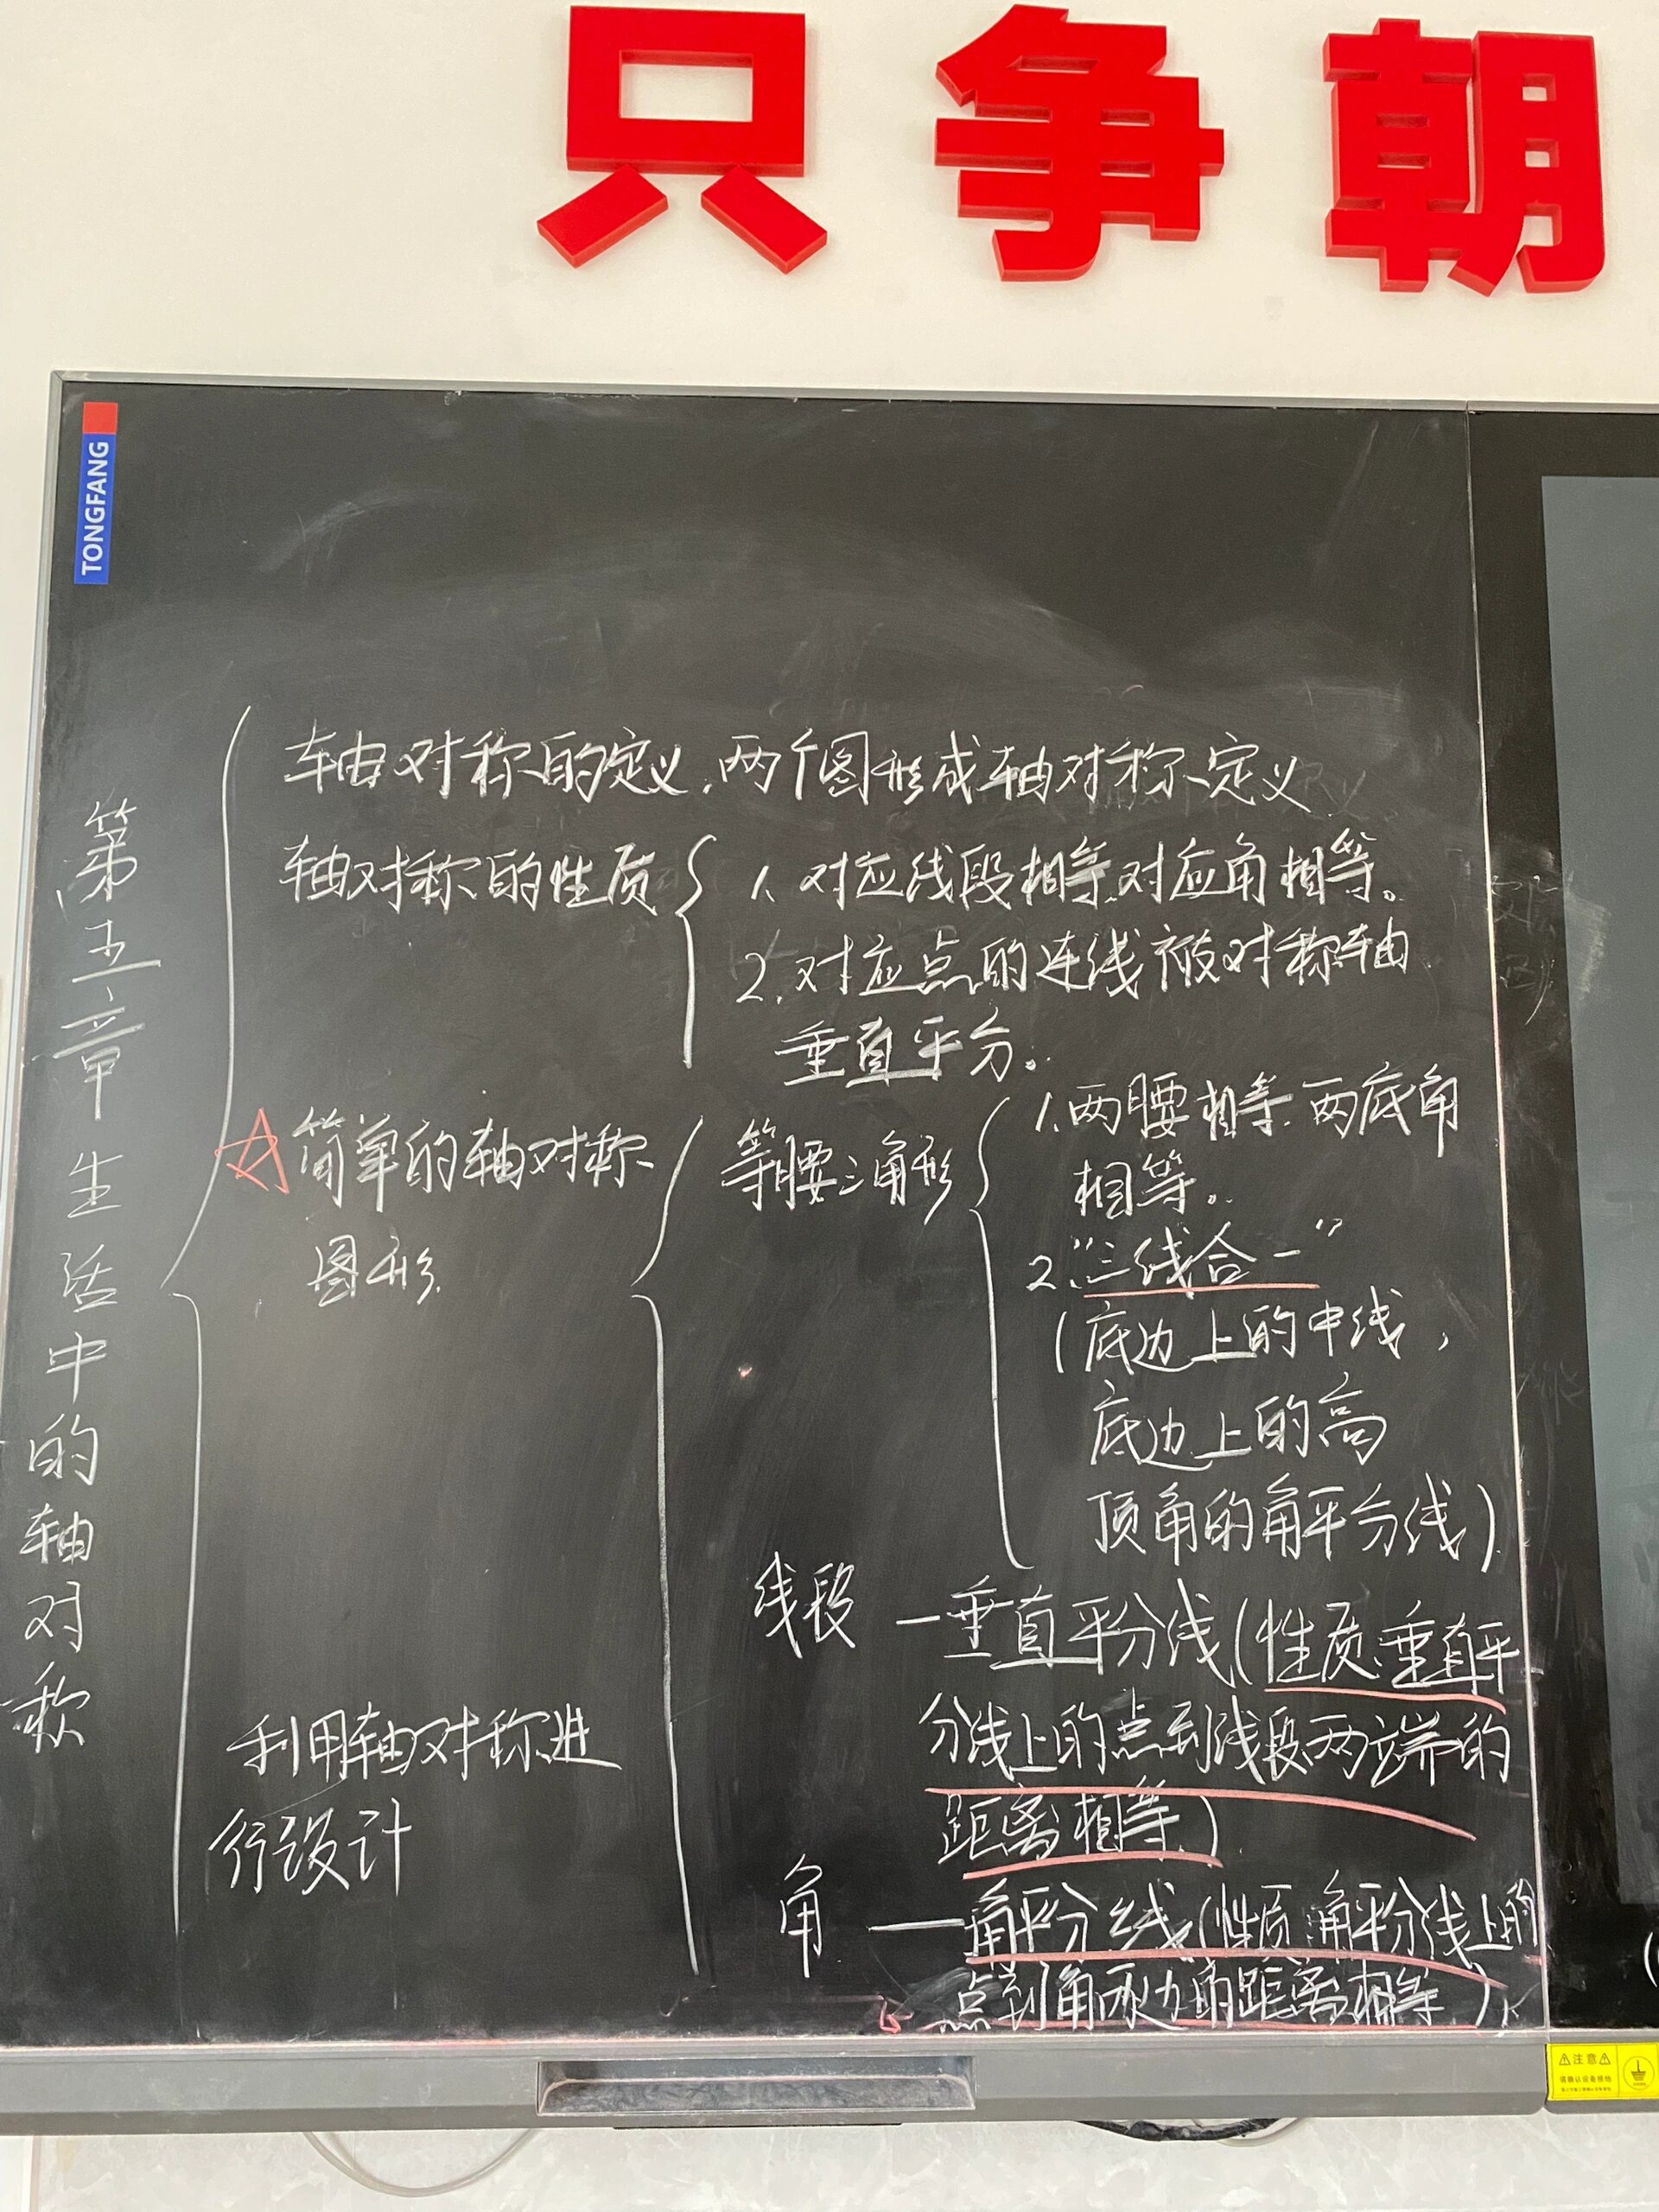 只争朝
TONGFANG
第五章 生活中的轴对称
轴对称的定义.两个图形成轴对称定义
轴对称的性质
1、对应线段相等.对应角相等。
2.对应点的连线被对称轴
垂直平分。
简单的轴对称
图形.
等腰三角形
1.两腰相等.两底角
相等。
2.“三线合一”
(底边上的中线,
底边上的高
顶角的角平分线)
线段 — 垂直平分线(性质:垂直平
分线上的点到线段两端的
距离相等)
角 — 角平分线(性质:角平分线上的
点到角两边的距离相等)
利用轴对称进
行设计
注意
请确认设备接地